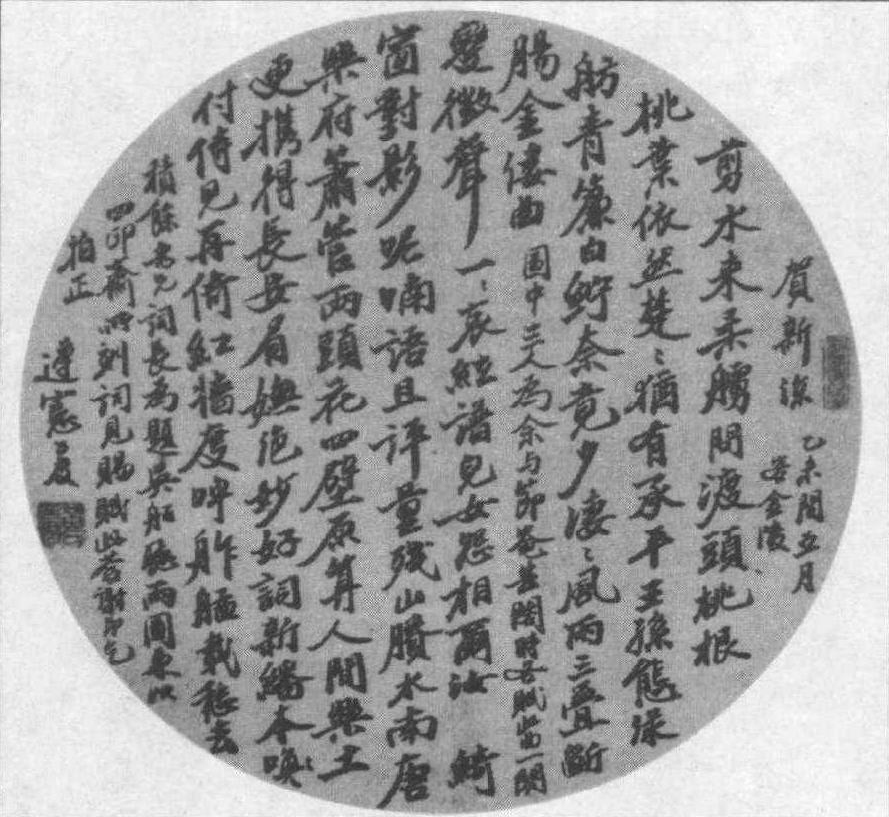 賀新涼 乙未閏五月
客金陵
剪水來柔艣問渡頭桃根
桃葉依然楚楚猶有承平王孫態
舫青簾白紵奈竟夕淒淒風雨三疊斷
腸金縷曲 圖中三人為余與節菴芸閣時各賦此曲一闋
變徵聲一一哀絃譜兒女怨相爾汝 綺
窗對影呢喃語且評量殘山賸水南唐
樂府簫管兩頭花四壁原算人間樂土
更攜得長安眉嫵絕妙好詞新繙本喚
付侍兒再倚紅牆度呼舴艋載愁去
積餘詞長為題吳船聽雨圖束以
四印齋所刻詞見賜賦此答謝即乞
拍正 遵憲